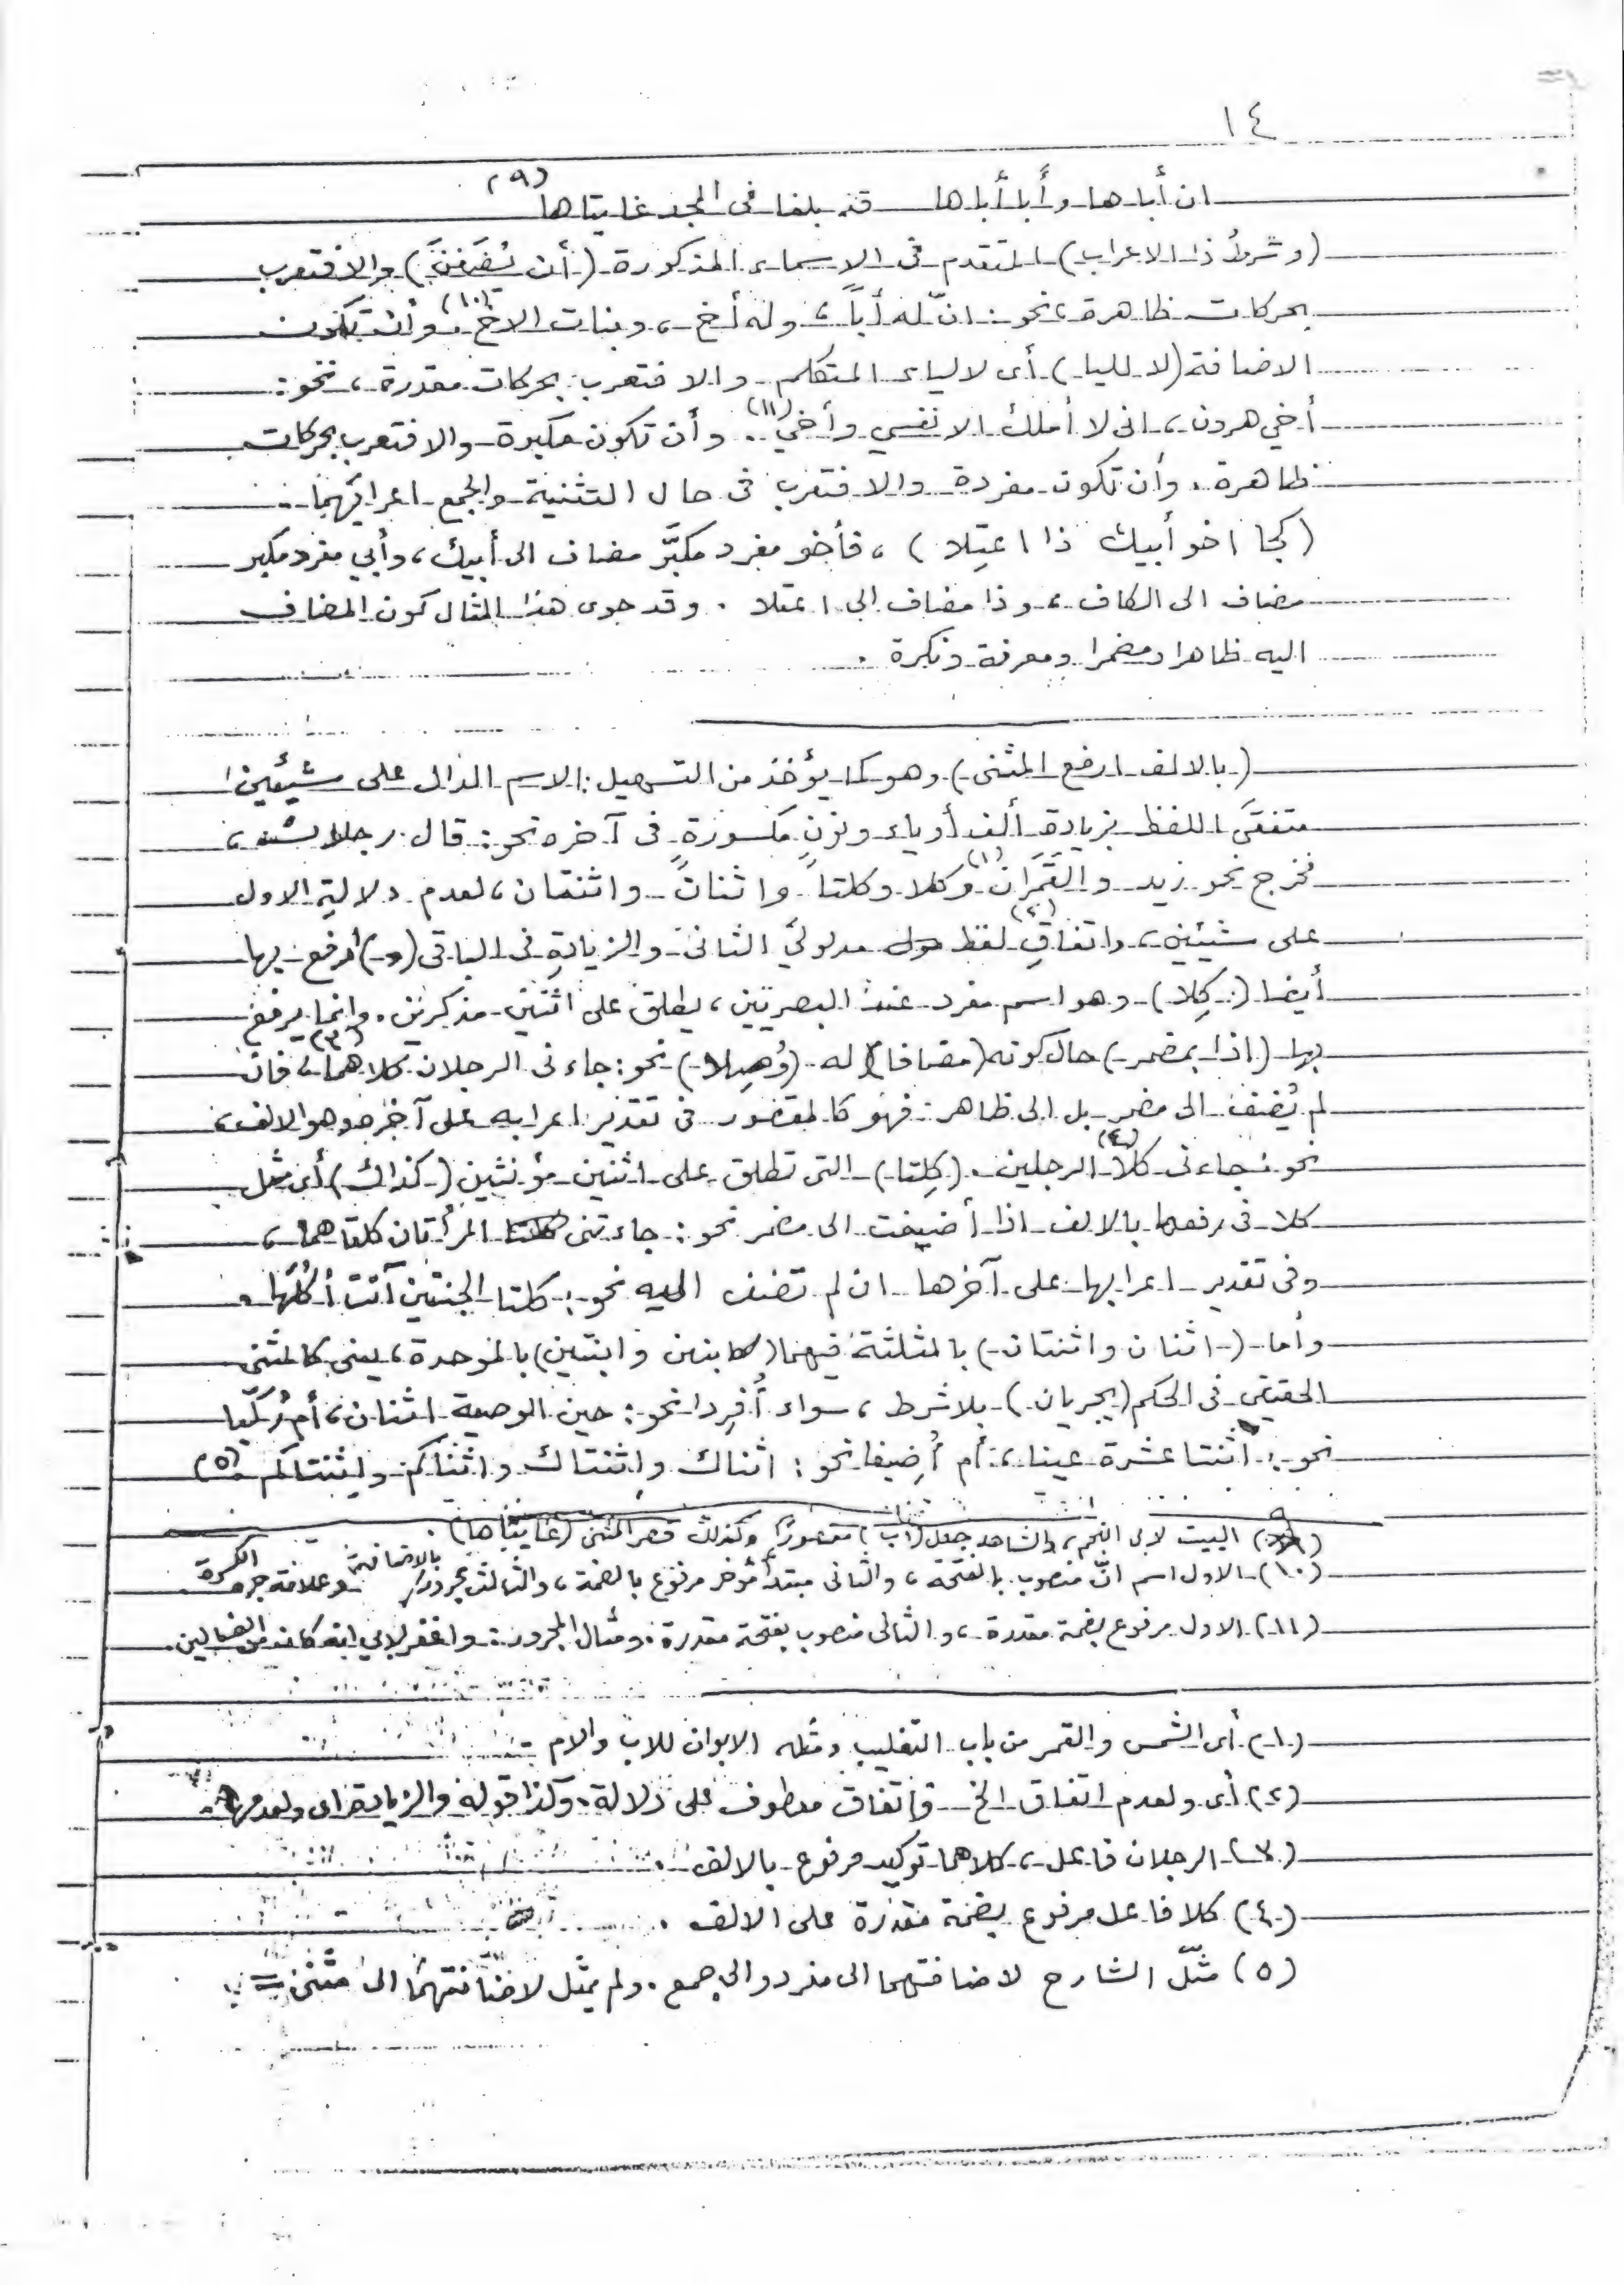 ١٤
ان أباها وأبا أباها قد بلغا فى المجد غايتاها (٩)
(وشرطُ ذا الاعراب) المتقدم فى الاسماء المذكورة (أن يُضَفنَ) والا فتعرب
بحركات ظاهرة، نحو: انّ له أباً، وله أخ، وبنات الاخ (١٠)، وأن تكون
الاضافة (لا لليا) أى لا لياء المتكلم والا فتعرب بحركات مقدرة، نحو:
أخي هرون، انى لا أملك الا نفسي وأخي (١١). وأن تكون مكبرة والا فتعرب بحركات
ظاهرة. وأن تكون مفردة والا فتعرب فى حال التثنية والجمع اعرابهما.
(كجا اخو أبيك ذا اعتِلا)، فأخو مفرد مكبَّر مضاف الى أبيك، وأبي مفرد مكبر
مضاف الى الكاف، وذا مضاف الى اعتلا. وقد حوى هذا المثال كون المضاف
اليه ظاهرا ومضمرا ومعرفة ونكرة.
(بالالف ارفع المثنى) وهو كما يؤخذ من التسهيل: الاسم الدال على شيئين
متفقَى اللفظ بزيادةِ ألف أو ياء ونونٍ مكسورةٍ فى آخره نحو: قال رجلان،
فخرج نحو زيد والقَمَران (١) وكلا وكلتا واثنان واثنتان، لعدم دلالةِ الاول
على شيئين، واتفاقِ (٢) لفظ مدلوليَ الثانى والزيادةِ فى الباقى (و) أرفع بها
أيضا (كِلا) وهو اسم مفرد عند البصريين، يطلق على اثنين مذكرين. وانما يرفع
بها (اذا بمضمر) حال كونه (مضافا) له (وُصِلا) نحو: جاءنى الرجلان كلاهما (٣)، فان
لم يُضف الى مضمر بل الى ظاهر فهو كالمقصور فى تقدير اعرابه على آخره وهو الالف،
نحو: جاءنى كلا (٤) الرجلين. (كِلتا) التى تطلق على اثنتين مؤنثين (كذاك) أى مثل
كلا فى رفعها بالالف اذا أضيفت الى مضمر نحو: جاءتنى المرأتان كلتاهما،
وفى تقدير اعرابها على آخرها ان لم تضف اليه نحو: كلتا الجنتين آتت أكُلَها.
وأما (اثنان واثنتان) بالمثلثة فيهما (كابنين وابنتين) بالموحدة، يعنى كالمثنى
الحقيقى فى الحكم (يجريان) بلا شرط، سواء أُفرِدا نحو: حين الوصية اثنان، أم رُكِّبا
نحو: اثنتا عشرة عينا، أم أُضِيفا نحو: اثناك واثنتاك واثناكم واثنتاكم (٥)
(٩) البيت لابى النجم، والشاهد جعل (أب) مقصوراً وكذلك قصر المثنى (غايتاها).
(١٠) الاول اسم انّ منصوب بالفتحة، والثانى مبتدأ مؤخر مرفوع بالضمة، والثالث مجرور بالاضافة وعلامة جره الكسرة
(١١) الاول مرفوع بضمة مقدرة، والثانى منصوب بفتحة مقدرة. ومثال المجرور: واغفر لابي انه كان من الضالين.
(١) أى الشمس والقمر من باب التغليب ومثله الابوان للاب والام
(٢) أى ولعدم اتفاق الخ واتفاق معطوف على دلالة. وكذا قوله والزيادة أى ولعدمها.
(٣) الرجلان فاعل، كلاهما توكيد مرفوع بالالف.
(٤) كلا فاعل مرفوع بضمة مقدرة على الالف.
(٥) مثّل الشارح لاضافتهما الى مفرد والى جمع. ولم يمثّل لاضافتهما الى مثنى =